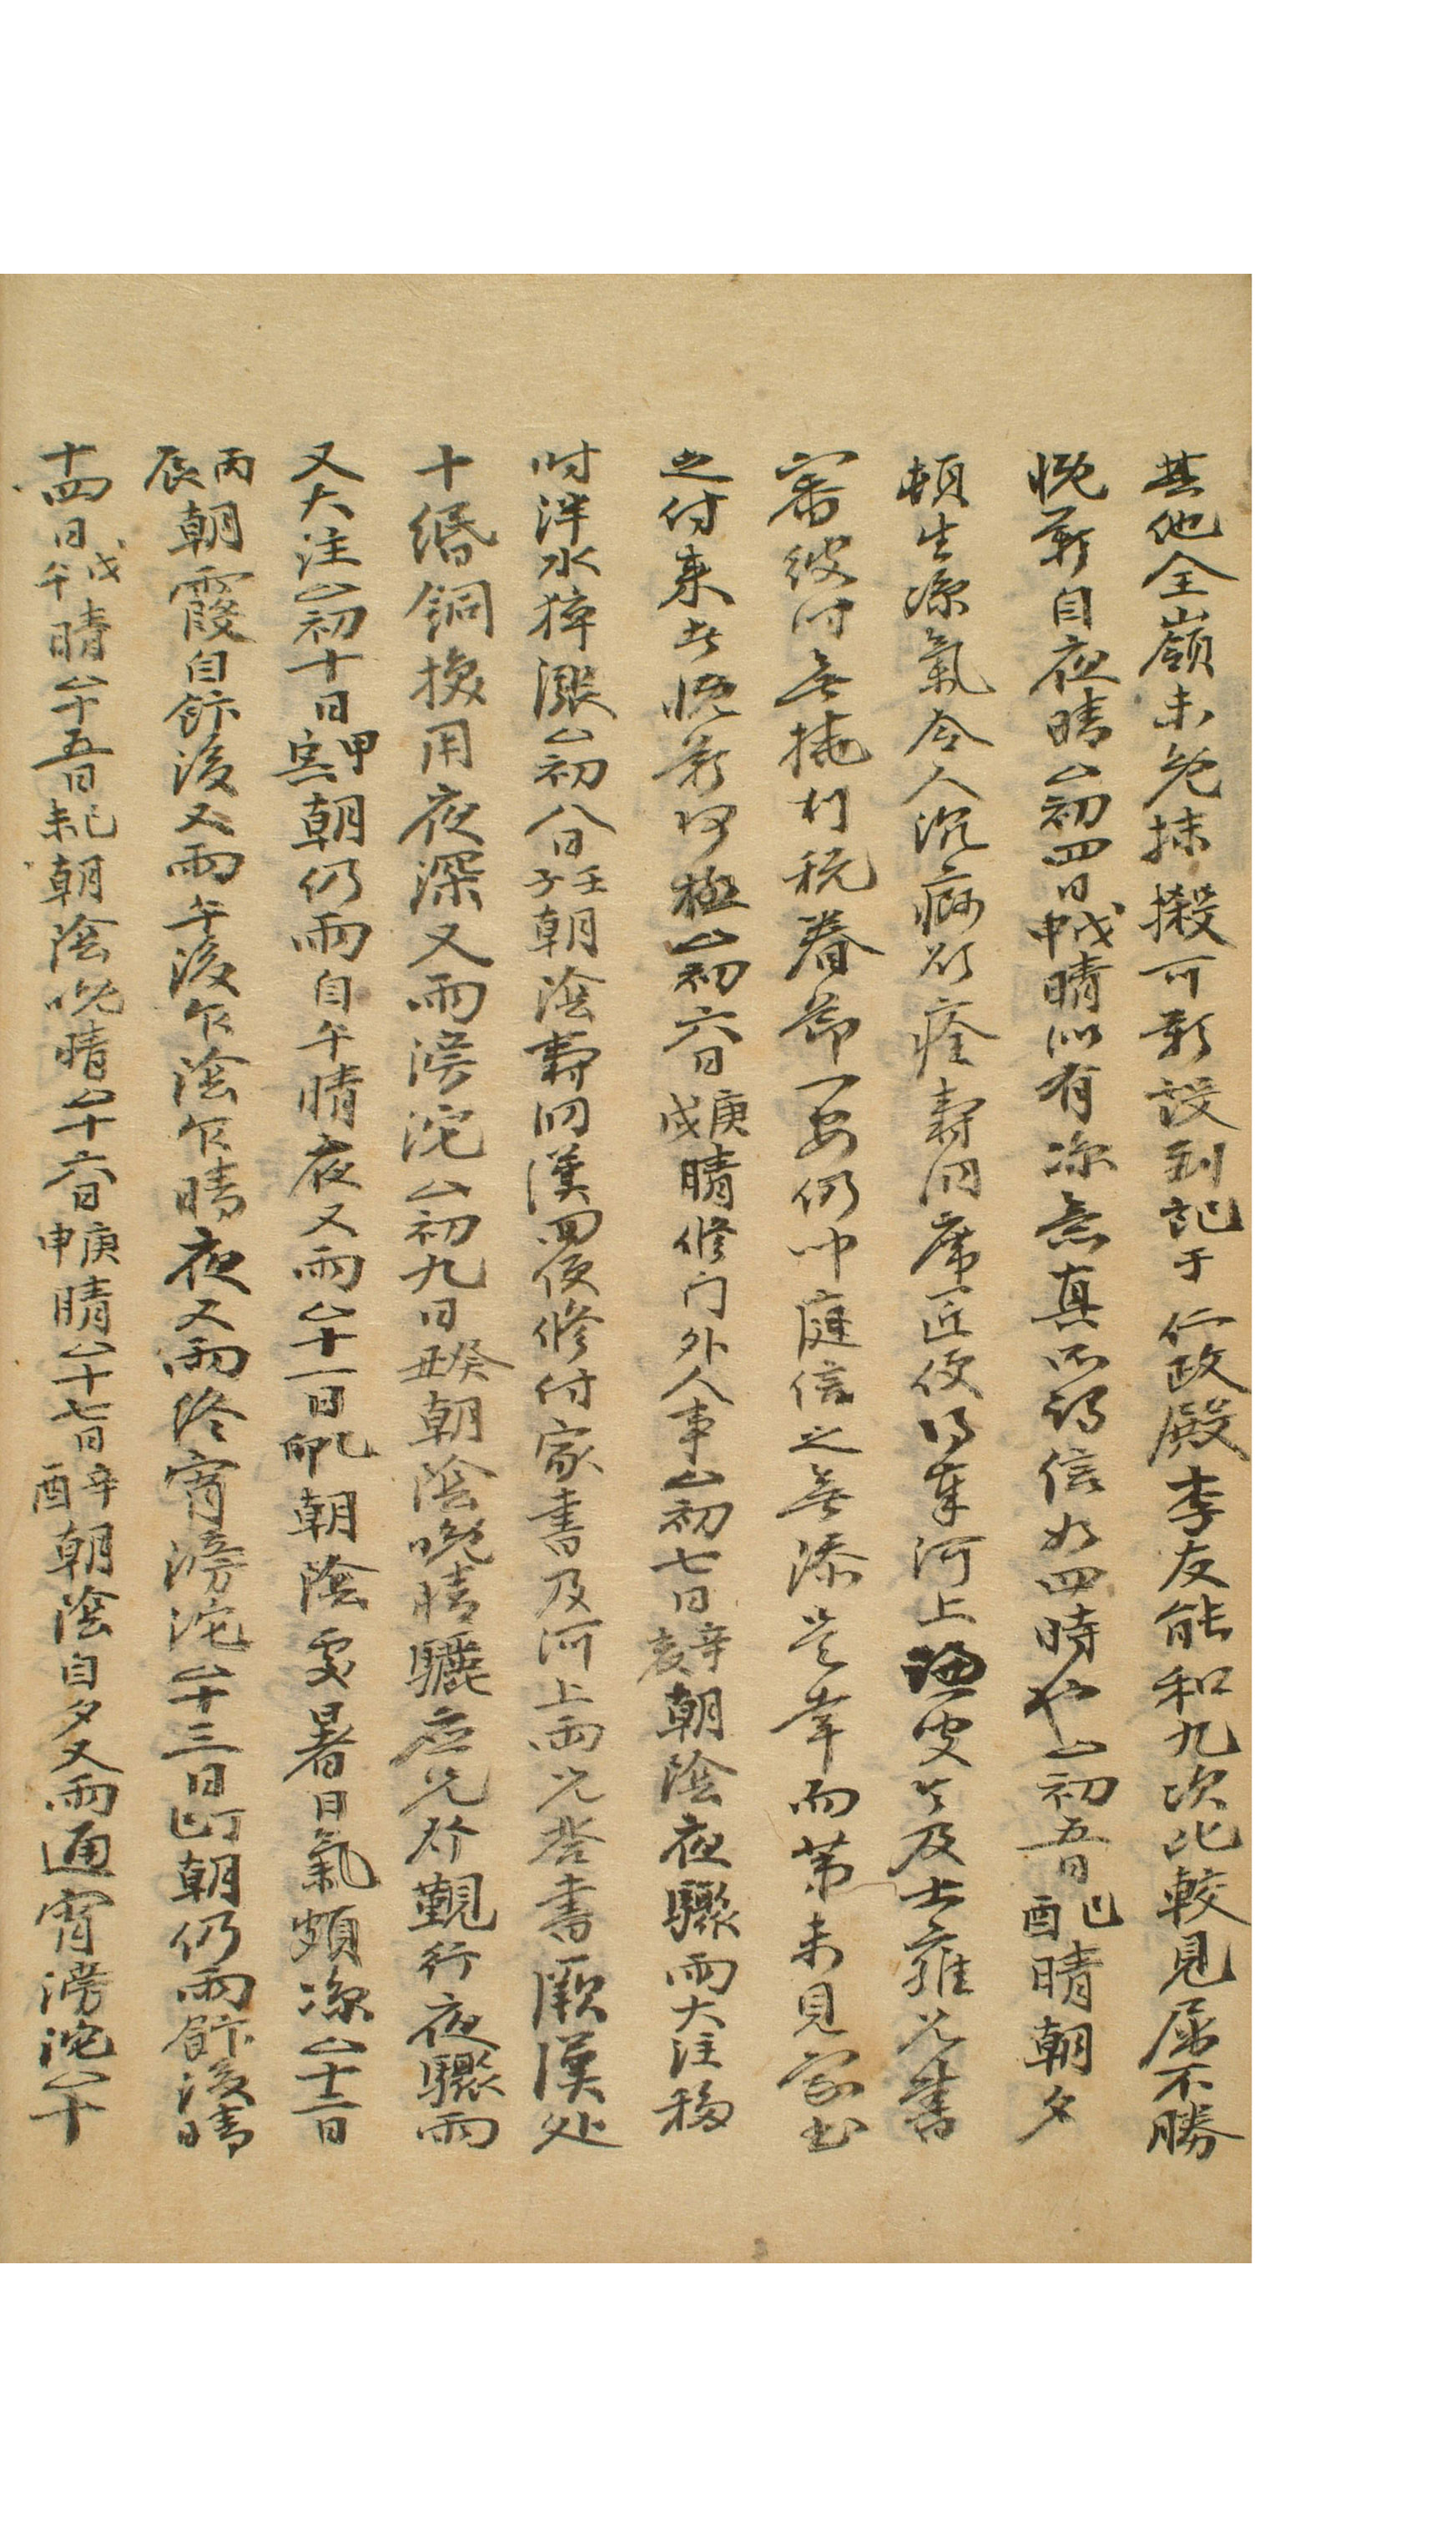 其他全嶺未免抹摋可歎設到記于 仁政殿李友能和九次比較見屈不勝
慨歎自夜晴△初四日戊申晴似有凉意真所謂信如四時也△初五日己酉晴朝夕
頓生凉氣令人沉痾欲痊壽洞席匠便得奉河上 叟公及士雍兄書
審彼時無撓利稅眷節一安仍叩庭信之無添豈幸而第未見家書
之付来者慨歎何極△初六日庚戌晴修门外人事△初七日辛亥朝陰夜驟雨大注移
時泮水猝漲△初八日壬子朝陰壽洞漢回便修付家書及河上兩兄答書厥漢处
十緡銅換用夜深又雨滂沱△初九日癸丑朝陰晩晴驪庄兄作覲行夜驟雨
又大注△初十日甲寅朝仍雨自午晴夜又雨△十一日乙卯朝陰處暑日氣頗凉△十二日
丙辰朝霞自飰後又雨午後乍陰乍晴夜又雨終宵滂沱△十三日丁巳朝仍雨飰後晴
十四日戊午晴△十五日己未朝陰晩晴△十六日庚申晴△十七日辛酉朝陰自夕又雨通宵滂沱△十